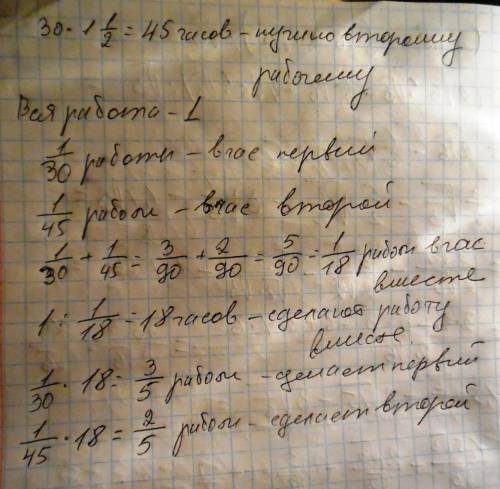 30 · 1 1/2 = 45 часов - нужно второму
рабочему
Вся работа - 1
1/30 работы - в час первий
1/45 работы - в час второй
1/30 + 1/45 = 3/90 + 2/90 = 5/90 = 1/18 работы в час
вместе
1 : 1/18 = 18 часов - сделают работу
вместе.
1/30 · 18 = 3/5 работы - сделает первый
1/45 · 18 = 2/5 работы - сделает второй